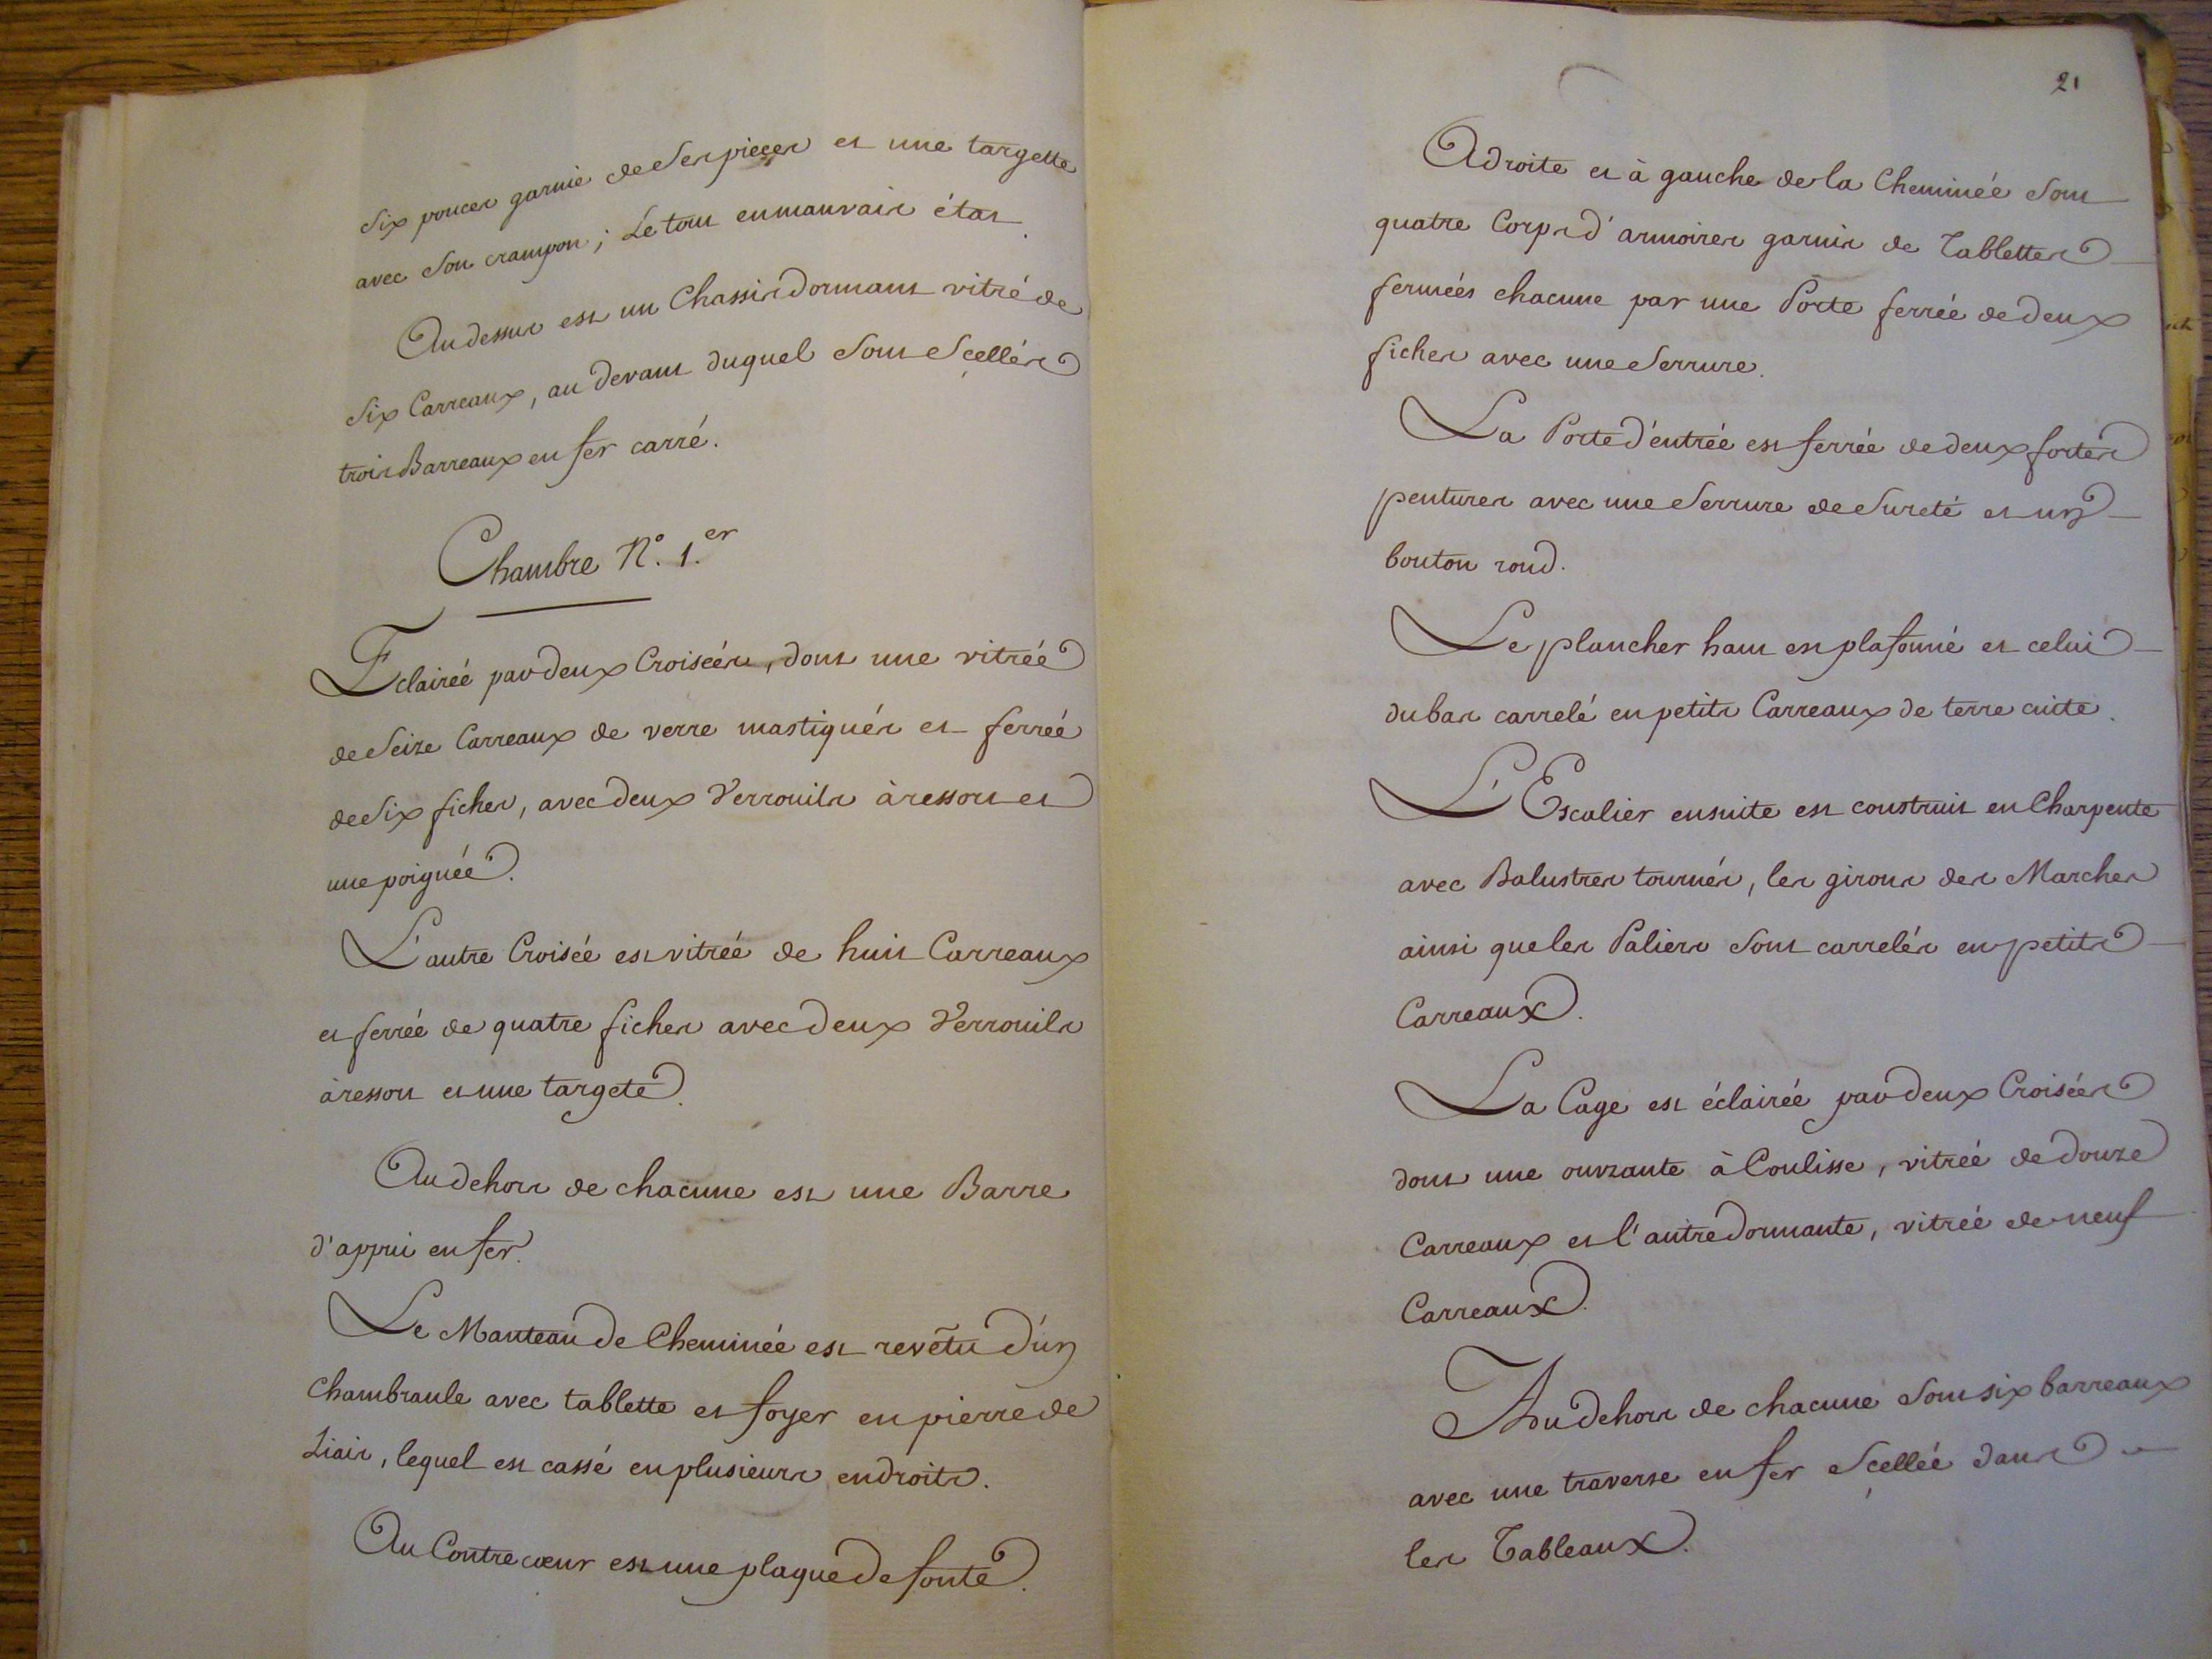 six pouces garnie de ses pieces et une targette
avec son crampon ; Le tout en mauvais état.
Au dessus est un Chassis dormant vitré de
six Carreaux, au devant duquel sont scellés
trois Barreaux en fer carré.
Chambre N°. 1.er
Eclairée par deux Croisées, dont une vitrée
de seize Carreaux de verre mastiqués et ferrée
de six fiches, avec deux Verrouils à ressort et
une poignée.
L'autre Croisée est vitrée de huit Carreaux
et ferrée de quatre fiches avec deux Verrouils
à ressort et une targete.
Au dehors de chacune est une Barre
d'appui en fer.
Le Manteau de Cheminée est revêtu d'un
Chambranle avec tablette et foyer en pierre de
Liais, lequel est cassé en plusieurs endroits.
Au Contrecœur est une plaque de fonte.
21
A droite et à gauche de la Cheminée sont
quatre Corps d'armoires garnis de Tablettes
fermées chacune par une Porte ferrée de deux
fiches avec une serrure.
La Porte d'entrée est ferrée de deux fortes
pentures avec une serrure de sureté et un
bouton rond.
Le plancher haut est plafonné et celui
du bas carrelé en petits Carreaux de terre cuite.
L'Escalier ensuite est construit en Charpente
avec Balustres tournés, les girons des Marches
ainsi que les Paliers sont carrelés en petits
Carreaux.
La Cage est éclairée par deux Croisées
dont une ouvrante à Coulisse, vitrée de douze
Carreaux et l'autre dormante, vitrée de neuf
Carreaux.
Au dehors de chacune sont six barreaux
avec une traverse en fer scellée dans
les Tableaux.